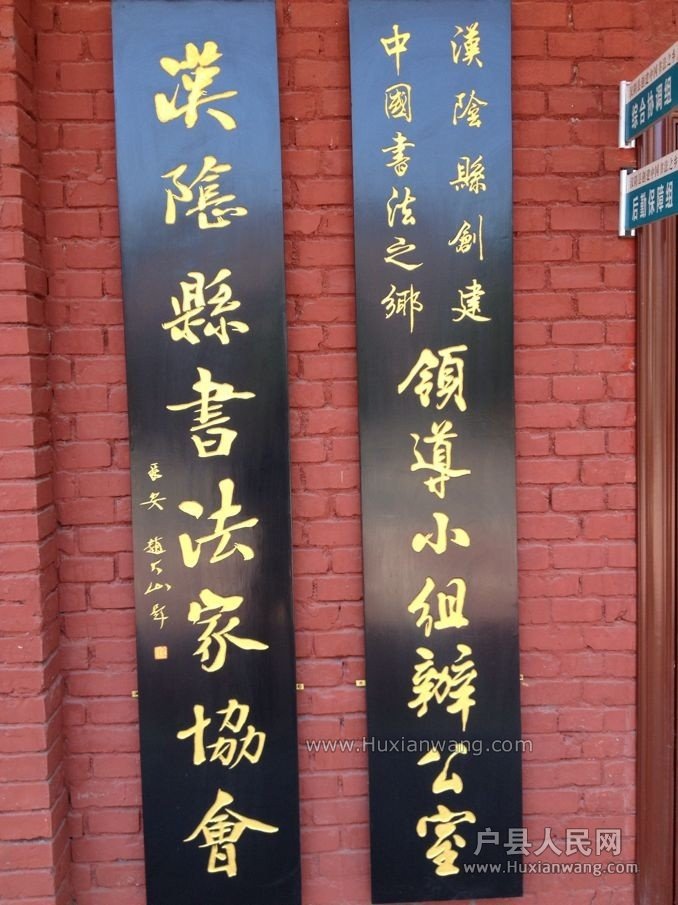 漢陰縣創建
中國書法之鄉
領導小組辦公室
漢陰縣書法家協會
長安 趙大山題
综合协调组
后勤保障组
www.Huxianwang.com
户县人民网
www.Huxianwang.com